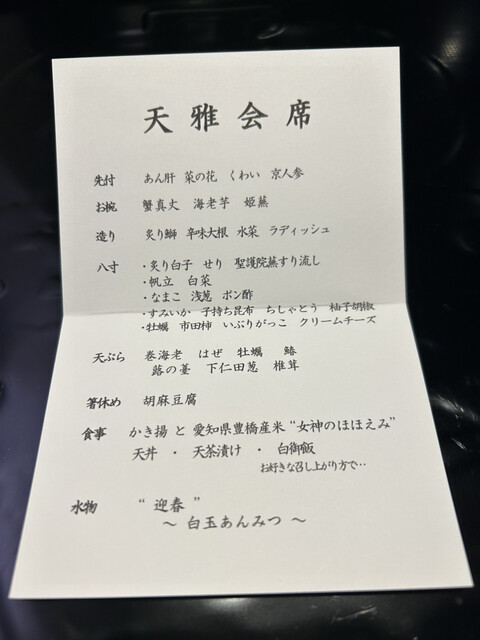 天雅会席
先付 あん肝 菜の花 くわい 京人参
お椀 蟹真丈 海老芋 姫蕪
造り 炙り鰤 辛味大根 水菜 ラディッシュ
八寸 ・炙り白子 せり 聖護院蕪すり流し
・帆立 白菜
・なまこ 浅葱 ポン酢
・すみいか 子持ち昆布 ちしゃとう 柚子胡椒
・牡蠣 市田柿 いぶりがっこ クリームチーズ
天ぷら 巻海老 はぜ 牡蠣 鰆
蕗の薹 下仁田葱 椎茸
箸休め 胡麻豆腐
食事 かき揚 と 愛知県豊橋産米 “女神のほほえみ”
天丼 ・ 天茶漬け ・ 白御飯
お好きな召し上がり方で…
水物 “ 迎春 ”
～ 白玉あんみつ ～